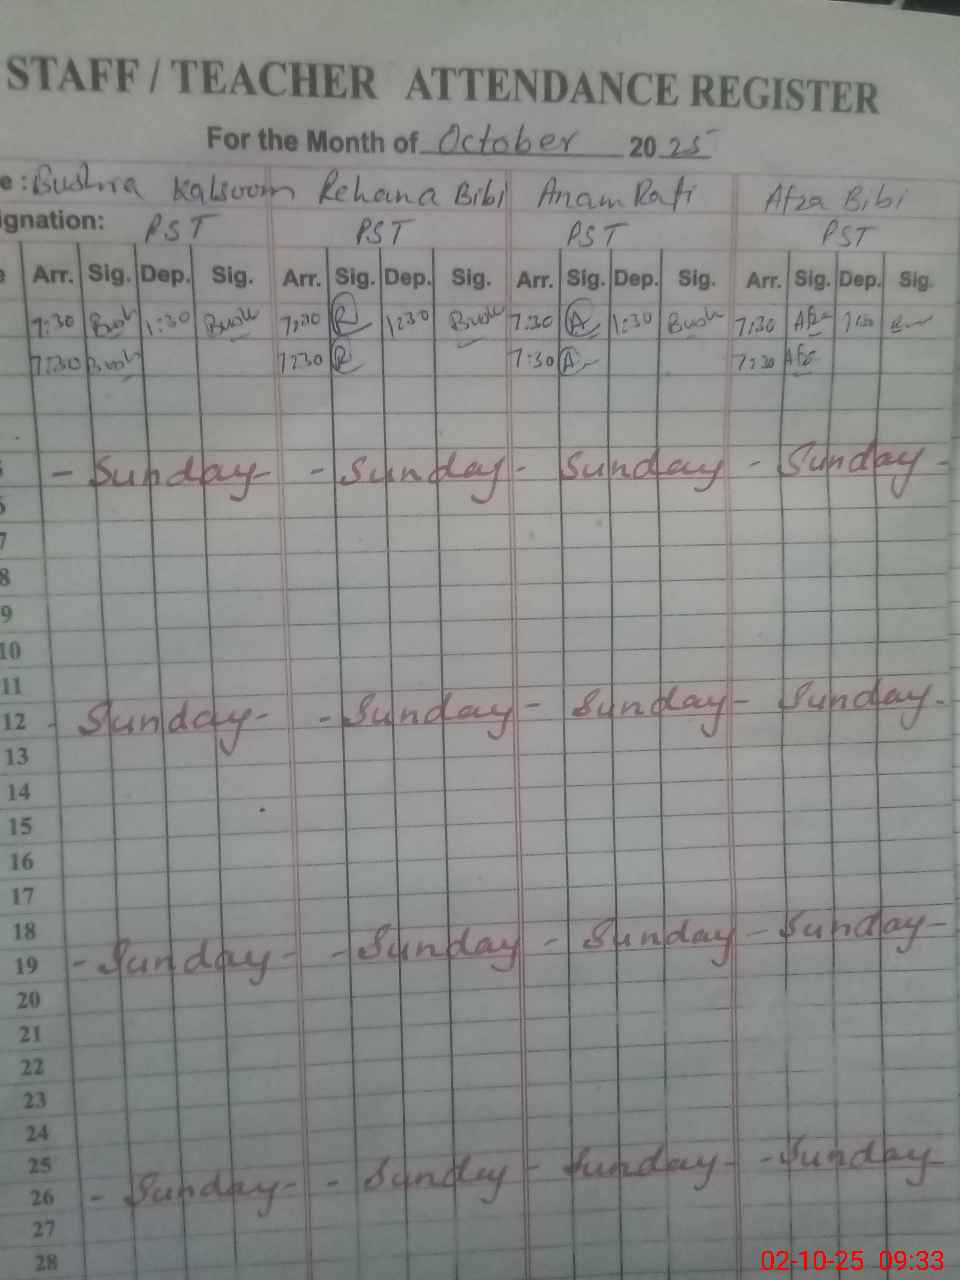 STAFF / TEACHER ATTENDANCE REGISTER
For the Month of October 2025
e : Bushra Kalsoom Rehana Bibi Anam Rafi Afza Bibi
ignation: PST PST PST PST
e Arr. Sig. Dep. Sig. Arr. Sig. Dep. Sig. Arr. Sig. Dep. Sig. Arr. Sig. Dep. Sig.
7:30 Bush 1:30 Bush 7:30 R 1:30 Bush 7:30 A 1:30 Bush 7:30 Afza 1:30
7:30 Bush 7:30 R 7:30 A 7:30 Afza
- Sunday - - Sunday - Sunday - Sunday -
7
8
9
10
11
12 - Sunday - - Sunday - Sunday - Sunday -
13
14
15
16
17
18
19 - Sunday - - Sunday - Sunday - Sunday -
20
21
22
23
24
25
26 - Sunday - - Sunday - Sunday - - Sunday
27
28
02-10-25 09:33